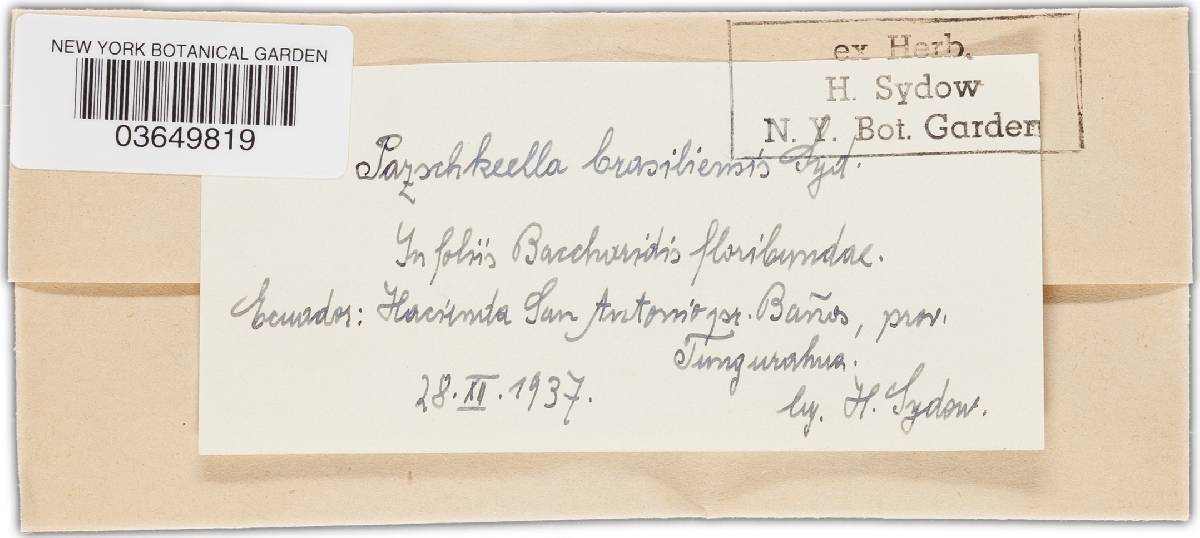 NEW YORK BOTANICAL GARDEN
03649819
ex Herb.
H. Sydow
N. Y. Bot. Garden
Pazschkeella brasiliensis Syd.
In foliis Baccharidis floribundae.
Ecuador: Hacienda San Antonio pr. Baños, prov.
Tungurahua.
28. XII. 1937.
leg. H. Sydow.